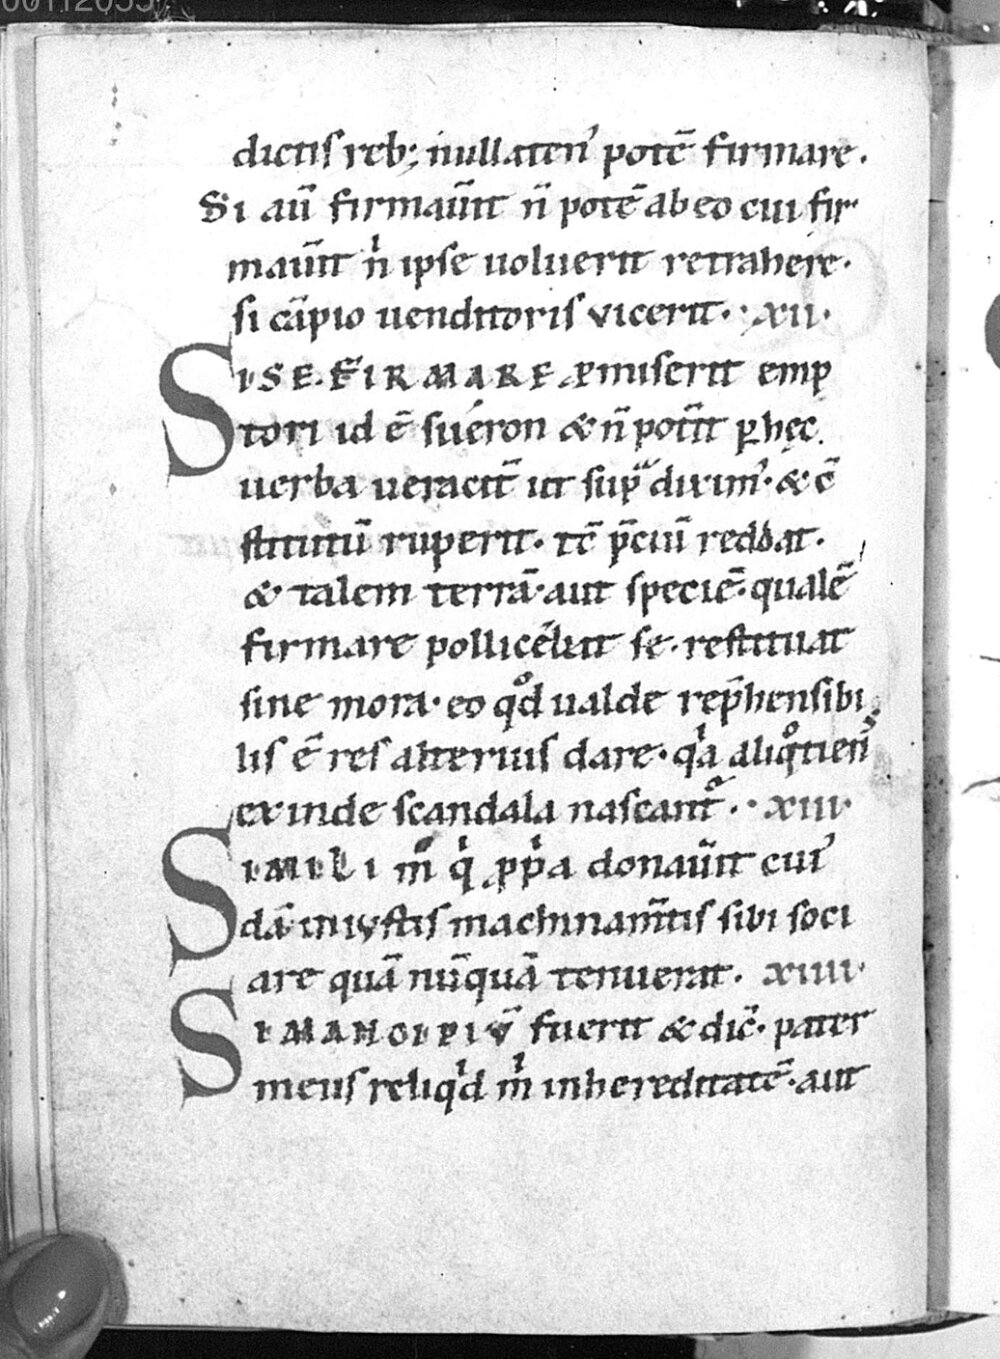 dictis reb; nullaten' potē firmare.
Si aū firmaūit n̄ potē ab eo cui fir
maūit n̍ ipse uoluerit retrahere.
si cāpio uenditoris vicerit. · xii ·
SI SE FIRMARE ꝓmiserit emp
tori id ē suéron & n̄ potīit ꝑ hęc
uerba ueracit̄ ut supͣ diximꝰ. & cō
stitutū ruperit. tc̄ p̄ciū reddat.
& talem terrā. aut speciē. qualē
firmare pollicebit̄ se. restituat
sine mora. eo qͦd ualde rep̄hensibi
lis ē res alterius dare. qͥa aliqͦtienꝰ
exinde scandala nascant᷑. · xiii ·
SIMILI m̊ qͥ ꝓpͥa donaūit cuiꝰ
dā iniustis machinam̄tis sibi soci
are quā nūquā tenuerat. xiiii ·
SI MANCIPIŪ fuerit & dic̄. pater
meus reliqͥd mͥ in hereditatē. aut